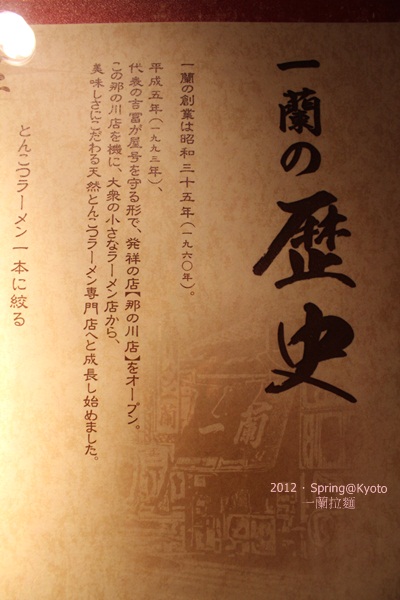 一蘭の歴史
一蘭の創業は昭和三十五年(一九六〇年)。
平成五年(一九九三年)、
代表の吉冨が屋号を守る形で、発祥の店【那の川店】をオープン。
この那の川店を機に、大衆の小さなラーメン店から、
美味しさにこだわる天然とんこつラーメン専門店へと成長し始めました。
とんこつラーメン一本に絞る
一蘭
2012・Spring@Kyoto
一蘭拉麵